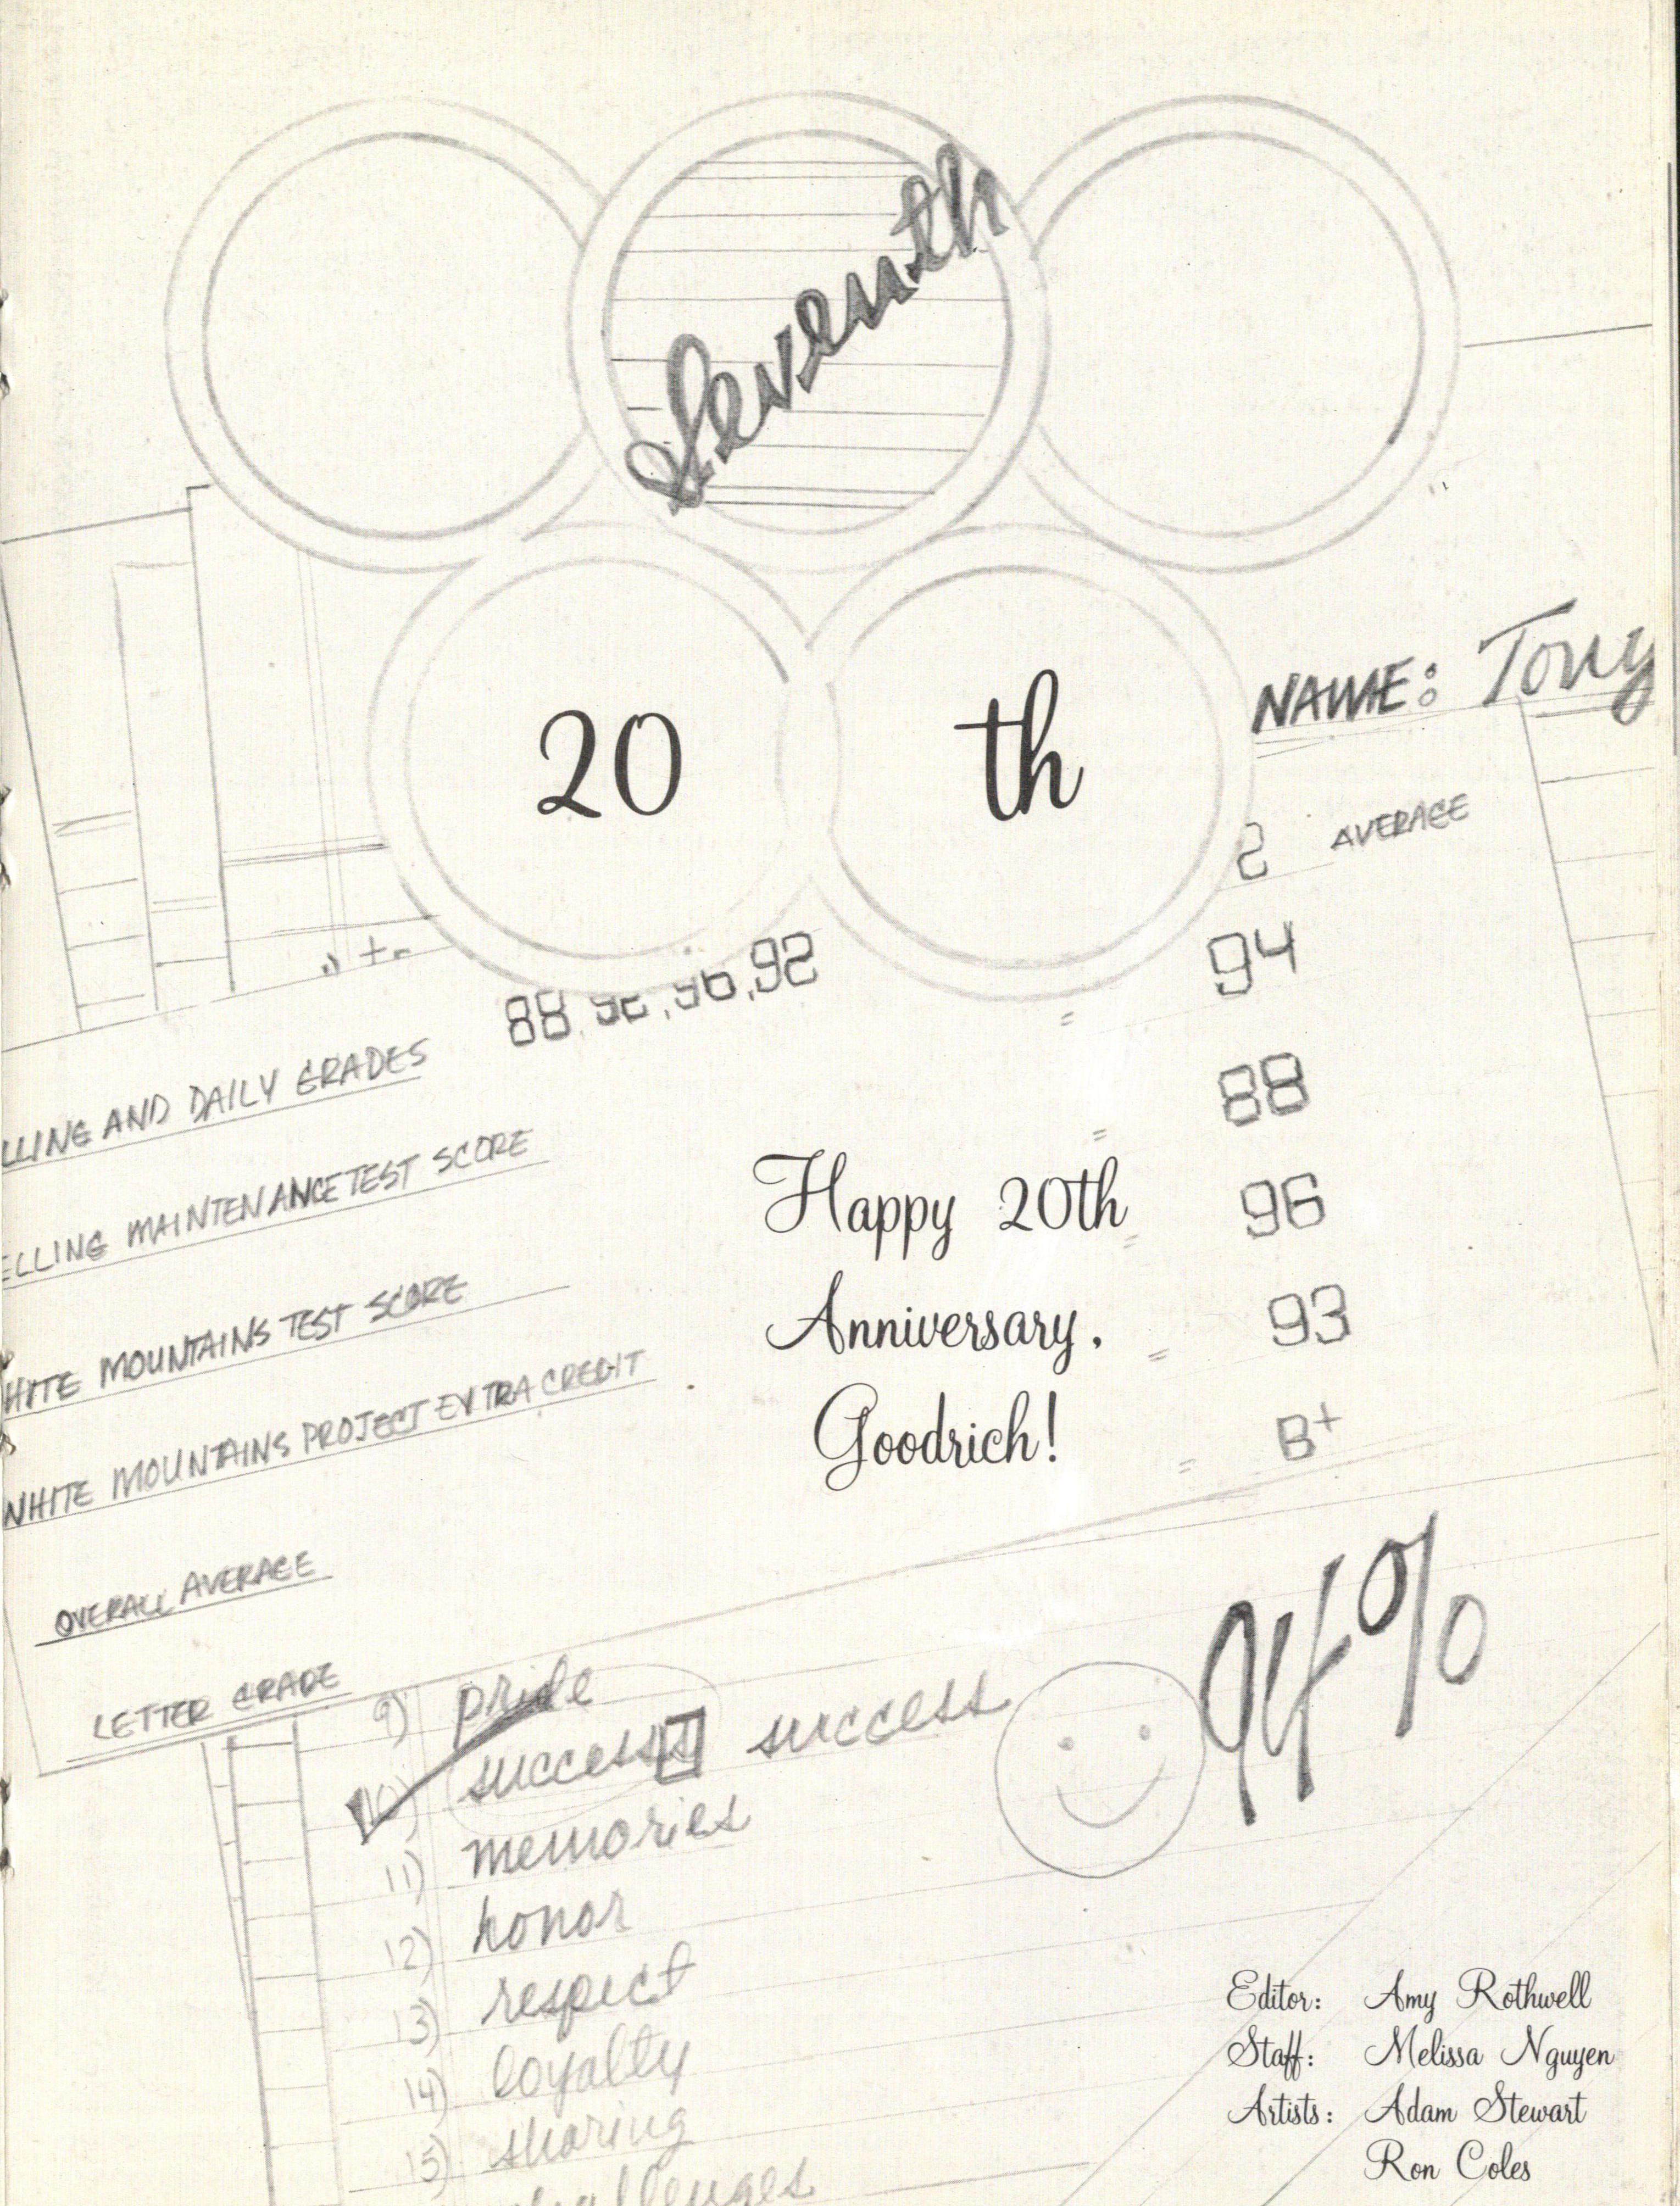 Seventh
20 th
NAME: Tony
2 AVERAGE
88, 92, 96, 92 = 94
LLING AND DAILY GRADES
= 88
ELLING MAINTENANCE TEST SCORE
Happy 20th = 96
HITE MOUNTAINS TEST SCORE
Anniversary, = 93
WHITE MOUNTAINS PROJECT EXTRA CREDIT
Goodrich! = B+
OVERALL AVERAGE
LETTER GRADE
94%
9) pride
10) success success
11) memories
12) honor
13) respect
14) loyalty
15) sharing
challenges
Editor: Amy Rothwell
Staff: Melissa Nguyen
Artists: Adam Stewart
Ron Coles